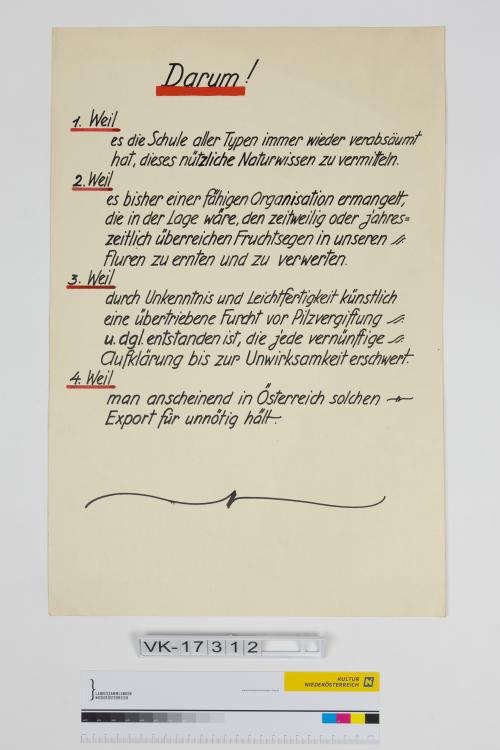 Darum!
1. Weil
es die Schule aller Typen immer wieder verabsäumt
hat, dieses nützliche Naturwissen zu vermitteln.
2. Weil
es bisher einer fähigen Organisation ermangelt,
die in der Lage wäre, den zeitweilig oder jahres=
zeitlich überreichen Fruchtsegen in unseren
Fluren zu ernten und zu verwerten.
3. Weil
durch Unkenntnis und Leichtfertigkeit künstlich
eine übertriebene Furcht vor Pilzvergiftung
u. dgl. entstanden ist, die jede vernünftige
Aufklärung bis zur Unwirksamkeit erschwert.
4. Weil
man anscheinend in Österreich solchen
Export für unnötig hält.
VK-17312
KULTUR
NIEDERÖSTERREICH N
LANDESSAMMLUNGEN
NIEDERÖSTERREICH